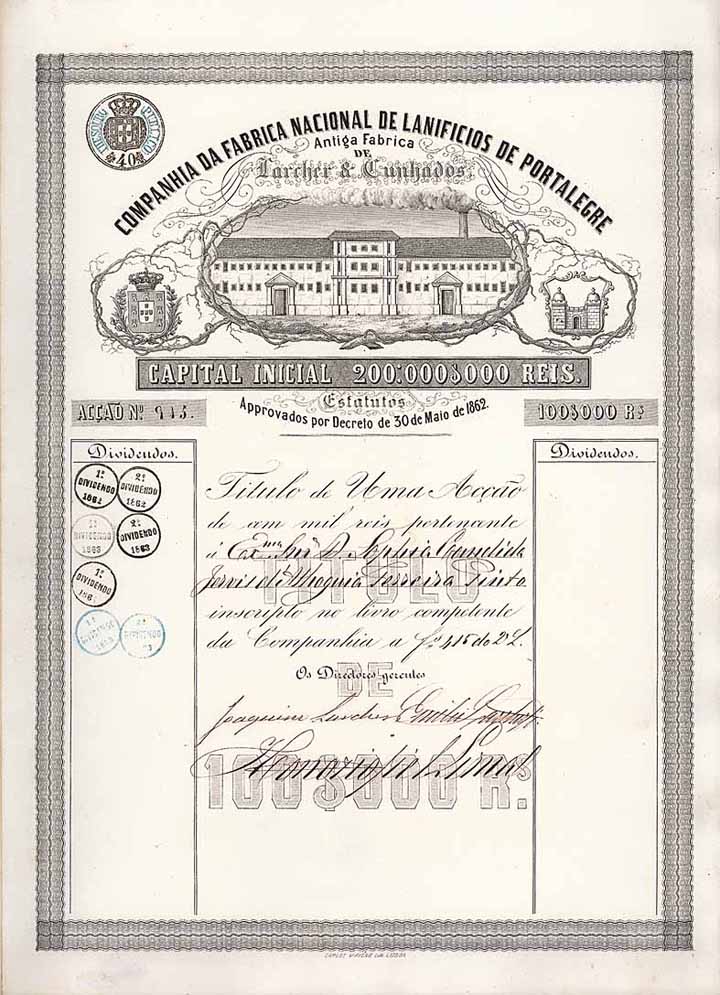 IMPOSTO DO SELLO PUBLICO
40
COMPANHIA DA FABRICA NACIONAL DE LANIFICIOS DE PORTALEGRE
Antiga Fabrica
DE
Larcher & Cunhados.
CAPITAL INICIAL 200:000$000 REIS.
Estatutos
Approvados por Decreto de 30 de Maio de 1862.
ACÇÃO Nº 945.
100$000 Rs
Dividendos.
Dividendos.
1º DIVIDENDO 1862
2º DIVIDENDO 1862
1º DIVIDENDO 1863
2º DIVIDENDO 1863
1º DIVIDENDO
DIVIDENDO
DIVIDENDO
Titulo de Uma Acção
de cem mil reis pertencente
á Exma Snra D. Sophia Candida
Jervis d'Athoguia Ferreira Pinto
inscripto no livro competente
da Companhia a fs 415 do 2º L.
TITULO
DE
100$000 Rs
Os Directores gerentes
Joaquim Larcher